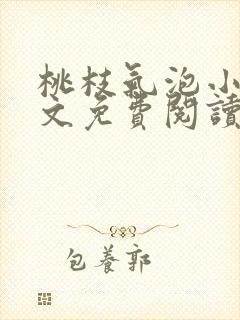 桃枝氣泡小
文免費閱讀
包養郭